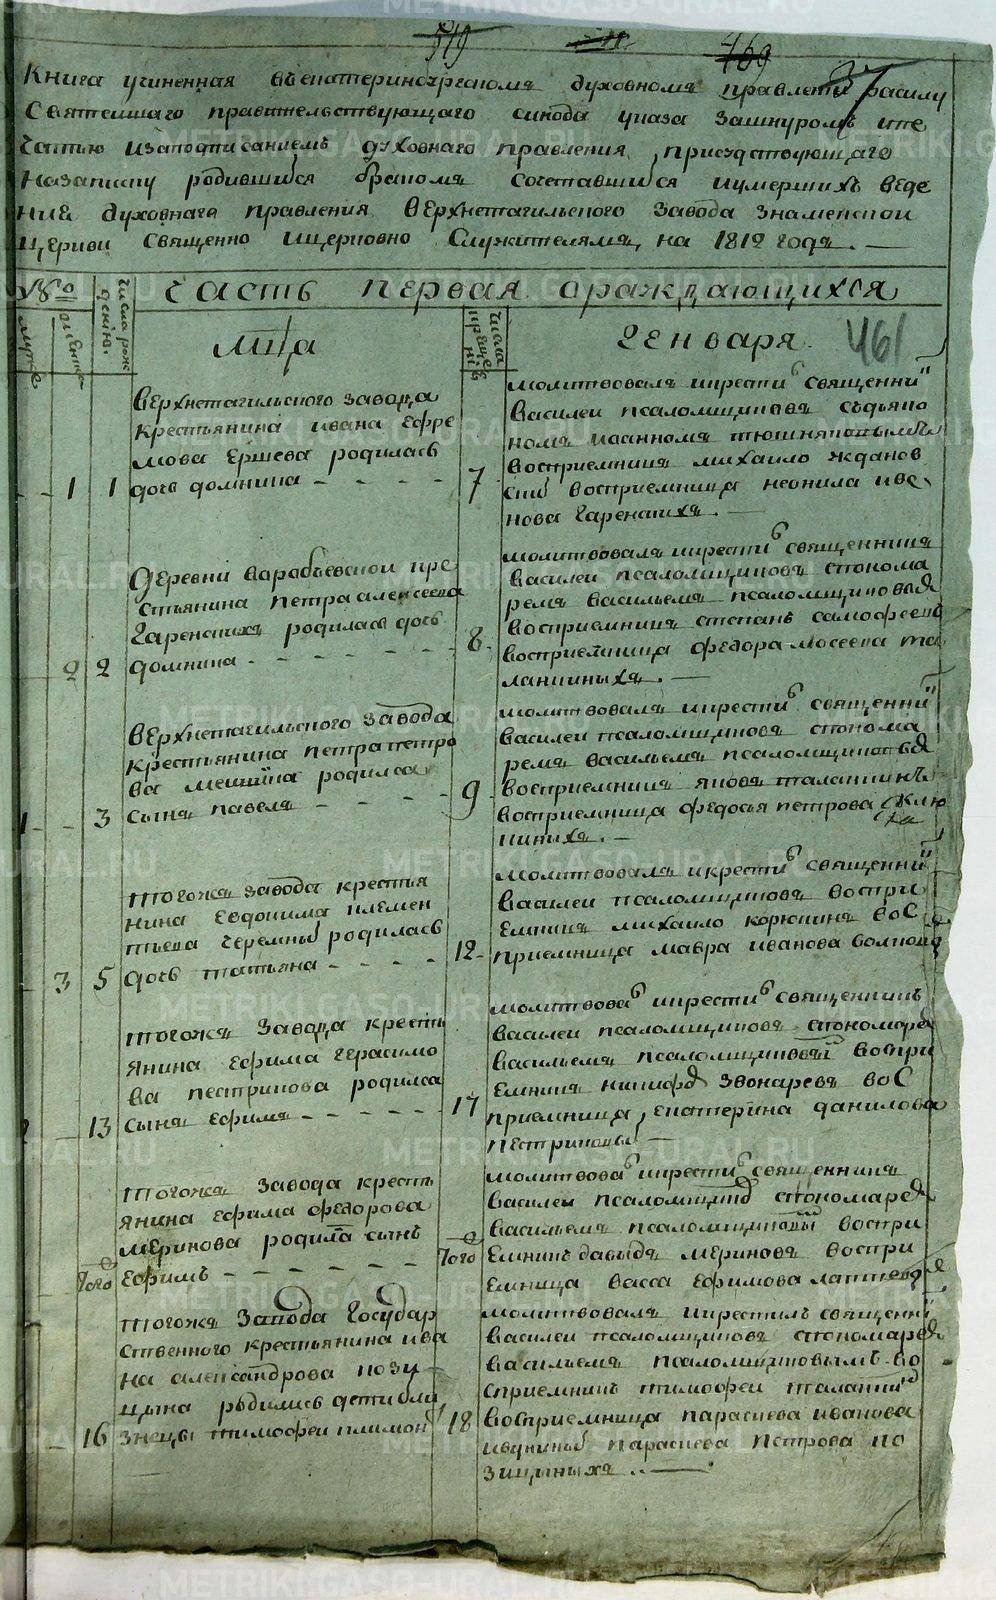 519 469
37
Книга учиненная въ екатеринбургскомъ духовномъ правлении василу
Святеишаго правительствующаго синода указа зашнуромъ ипе
чатью изаподписаниемъ духовнаго правления присудствующаго
Назаписку родившихся бракомъ сочетавшихся иумершихъ веде
ния духовнаго правления верхнетагильского завода знаменской
церкви священно ицерковно служителямъ, на 1812 годъ. —
№ числа рож дению. Часть первая ораждающихся
мужеска женска Лица числа крещенї Генваря 461
верхнетагильского завода
крестьянина ивана ефре
мова Ершева родилась
1 1 дочь домнина - - - -
7 молитвовалъ икрестил священни
василеи псаломщиковъ съдьяко
номъ иоанномъ тюшняковымъ
восприемникъ михаило ждановъ
восприемница неонила ива
нова Гаренскихъ. —
деревни варабьевской кре
стьянина петра алексеева
Гаренскихъ родилась дочь
2 2 домнина - - - - - -
8 молитвовалъ икрестил священникъ
василеи псаломщиковъ спонома
ремъ васильемъ псаломщиковы
восприемникъ степанъ самофеевъ
восприемница федора моссеева та
ланкиныхъ. —
верхнетагильского завода
крестьянина петра петро
ва мешкина родился
1 3 сынъ павелъ - - - -
9 молитвовалъ икрестил священни
василеи псаломщиковъ спонома
ремъ васильемъ псаломщиковы
восприемникъ яковъ таланкинъ
восприемница федосья петрова Клю
киныхъ. —
тогожъ завода крестья
нина Евдокима клемен
тьева черемных родилась
3 5 дочь татьяна - - - -
12 молитвовалъ икрестил священни
василеи псаломщиковъ воспри
емникъ михаило корюкинъ вос
приемница мавра иванова волков
тогожъ завода кресть
янина ефима герасимо
ва пестрикова родился
2 13 сынъ ефимъ - - - - -
17 молитвова икрестил священникъ
василеи псаломщиковъ спономаре
васильемъ псаломщиковы воспри
емникъ никифор звонаревъ вос
приемница екатерина данилова
пестриковы —
тогожъ завода кресть
янина ефима федорова
мерикова родился сынъ
Того ефимъ - - - - - -
Того молитвова икрестил священникъ
василеи псаломщик спономаре
васильемъ псаломщиковы воспри
емникъ давыдъ мериковъ воспри
емница васса ефимова лаптева
тогожъ завода Государ
ственного крестьянина ива
на александрова кози
цына родились дети бли
16 знецы тимофеи филимон
18 молитвовалъ икрестилъ священни
василеи псаломщиковъ спономаре
васильемъ псаломщиковымъ во
сприемникъ тимофеи таланки
восприемница параскева иванова
параскева петрова ко
зицыныхъ. —
METRIKI.GASO-URAL.RU